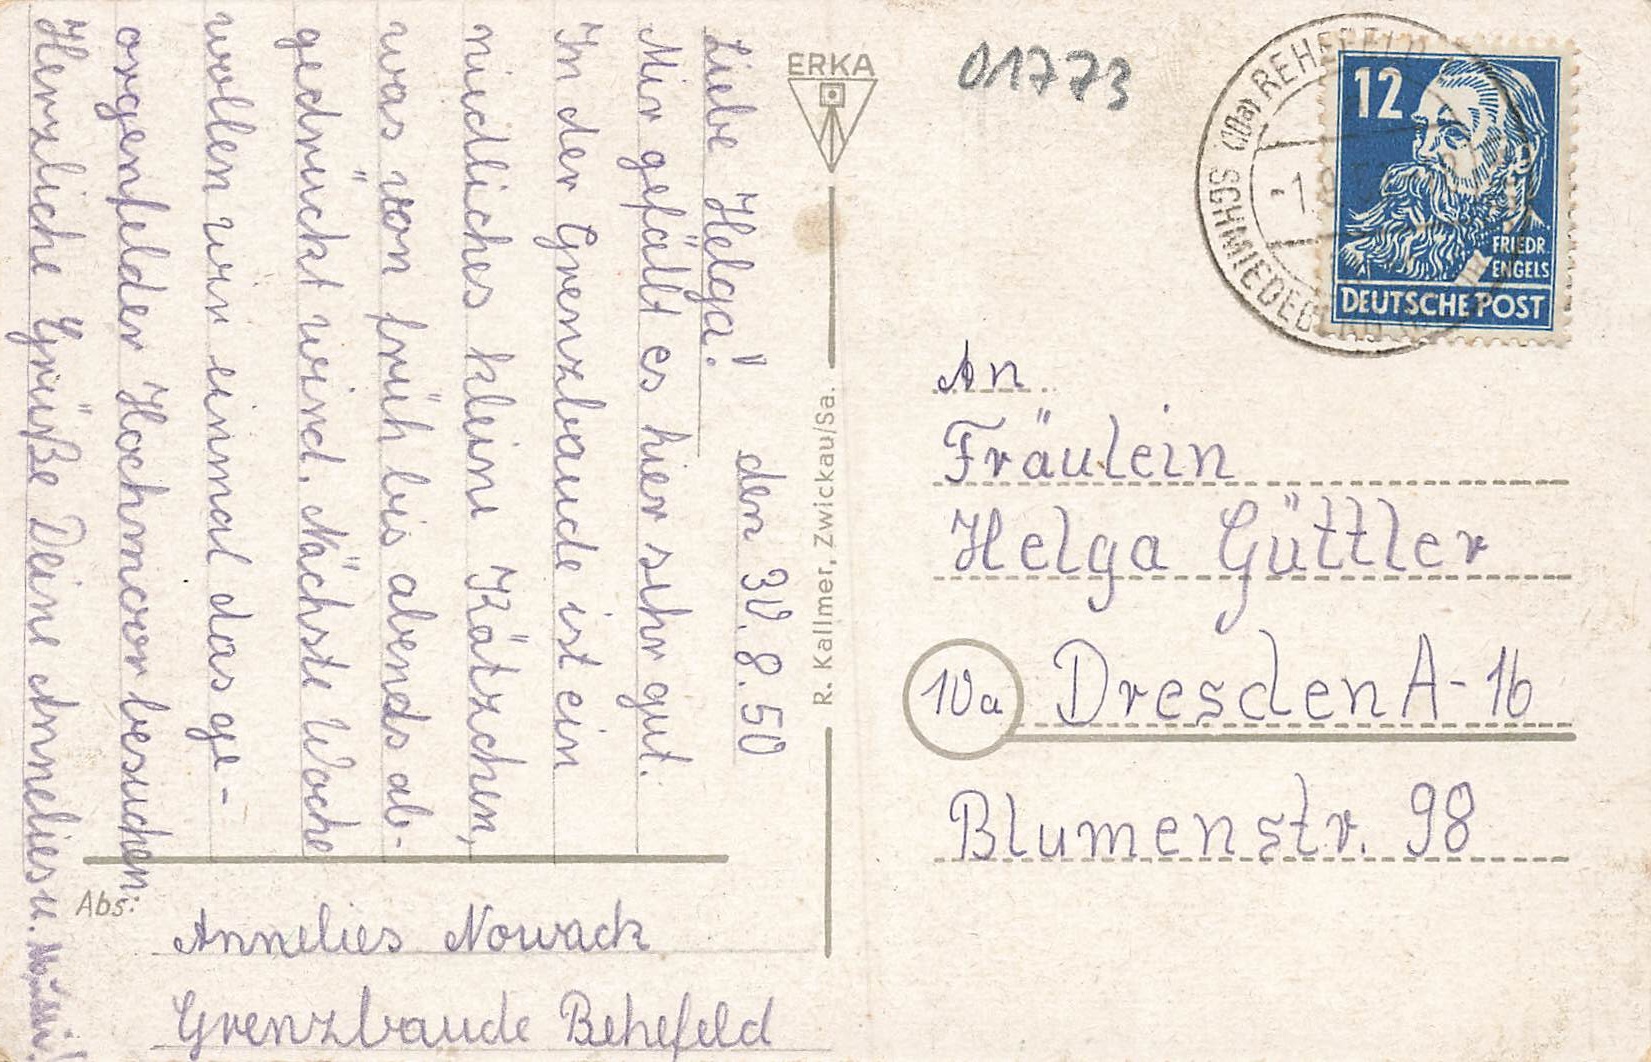 den 30.8.50
Liebe Helga!
Mir gefällt es hier sehr gut.
In der Grenzbaude ist ein
niedliches kleine Kätzchen,
was von früh bis abends ab-
gedrückt wird. Nächste Woche
wollen wir einmal das ge-
orgenfelder Hochmoor besuchen.
Herzliche Grüße Deine Annelies u.
Abs:
Annelies Nowack
Grenzbaude Behefeld
ERKA
R. Kallmer, Zwickau/Sa.
01773
SCHMIEDEBERG (10a) REHEFELD
-1.8
12
FRIEDR
ENGELS
DEUTSCHE POST
An
Fräulein
Helga Güttler
10a Dresden A-16
Blumenstr. 98